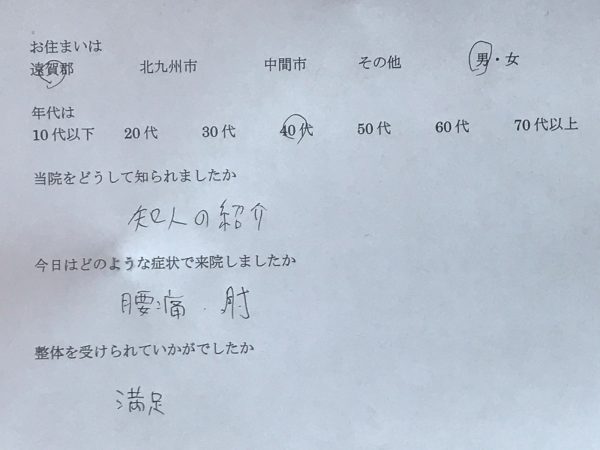 お住まいは
遠賀郡 北九州市 中間市 その他 男・女
年代は
10代以下 20代 30代 40代 50代 60代 70代以上
当院をどうして知られましたか
知人の紹介
今日はどのような症状で来院しましたか
腰痛.肘
整体を受けられていかがでしたか
満足